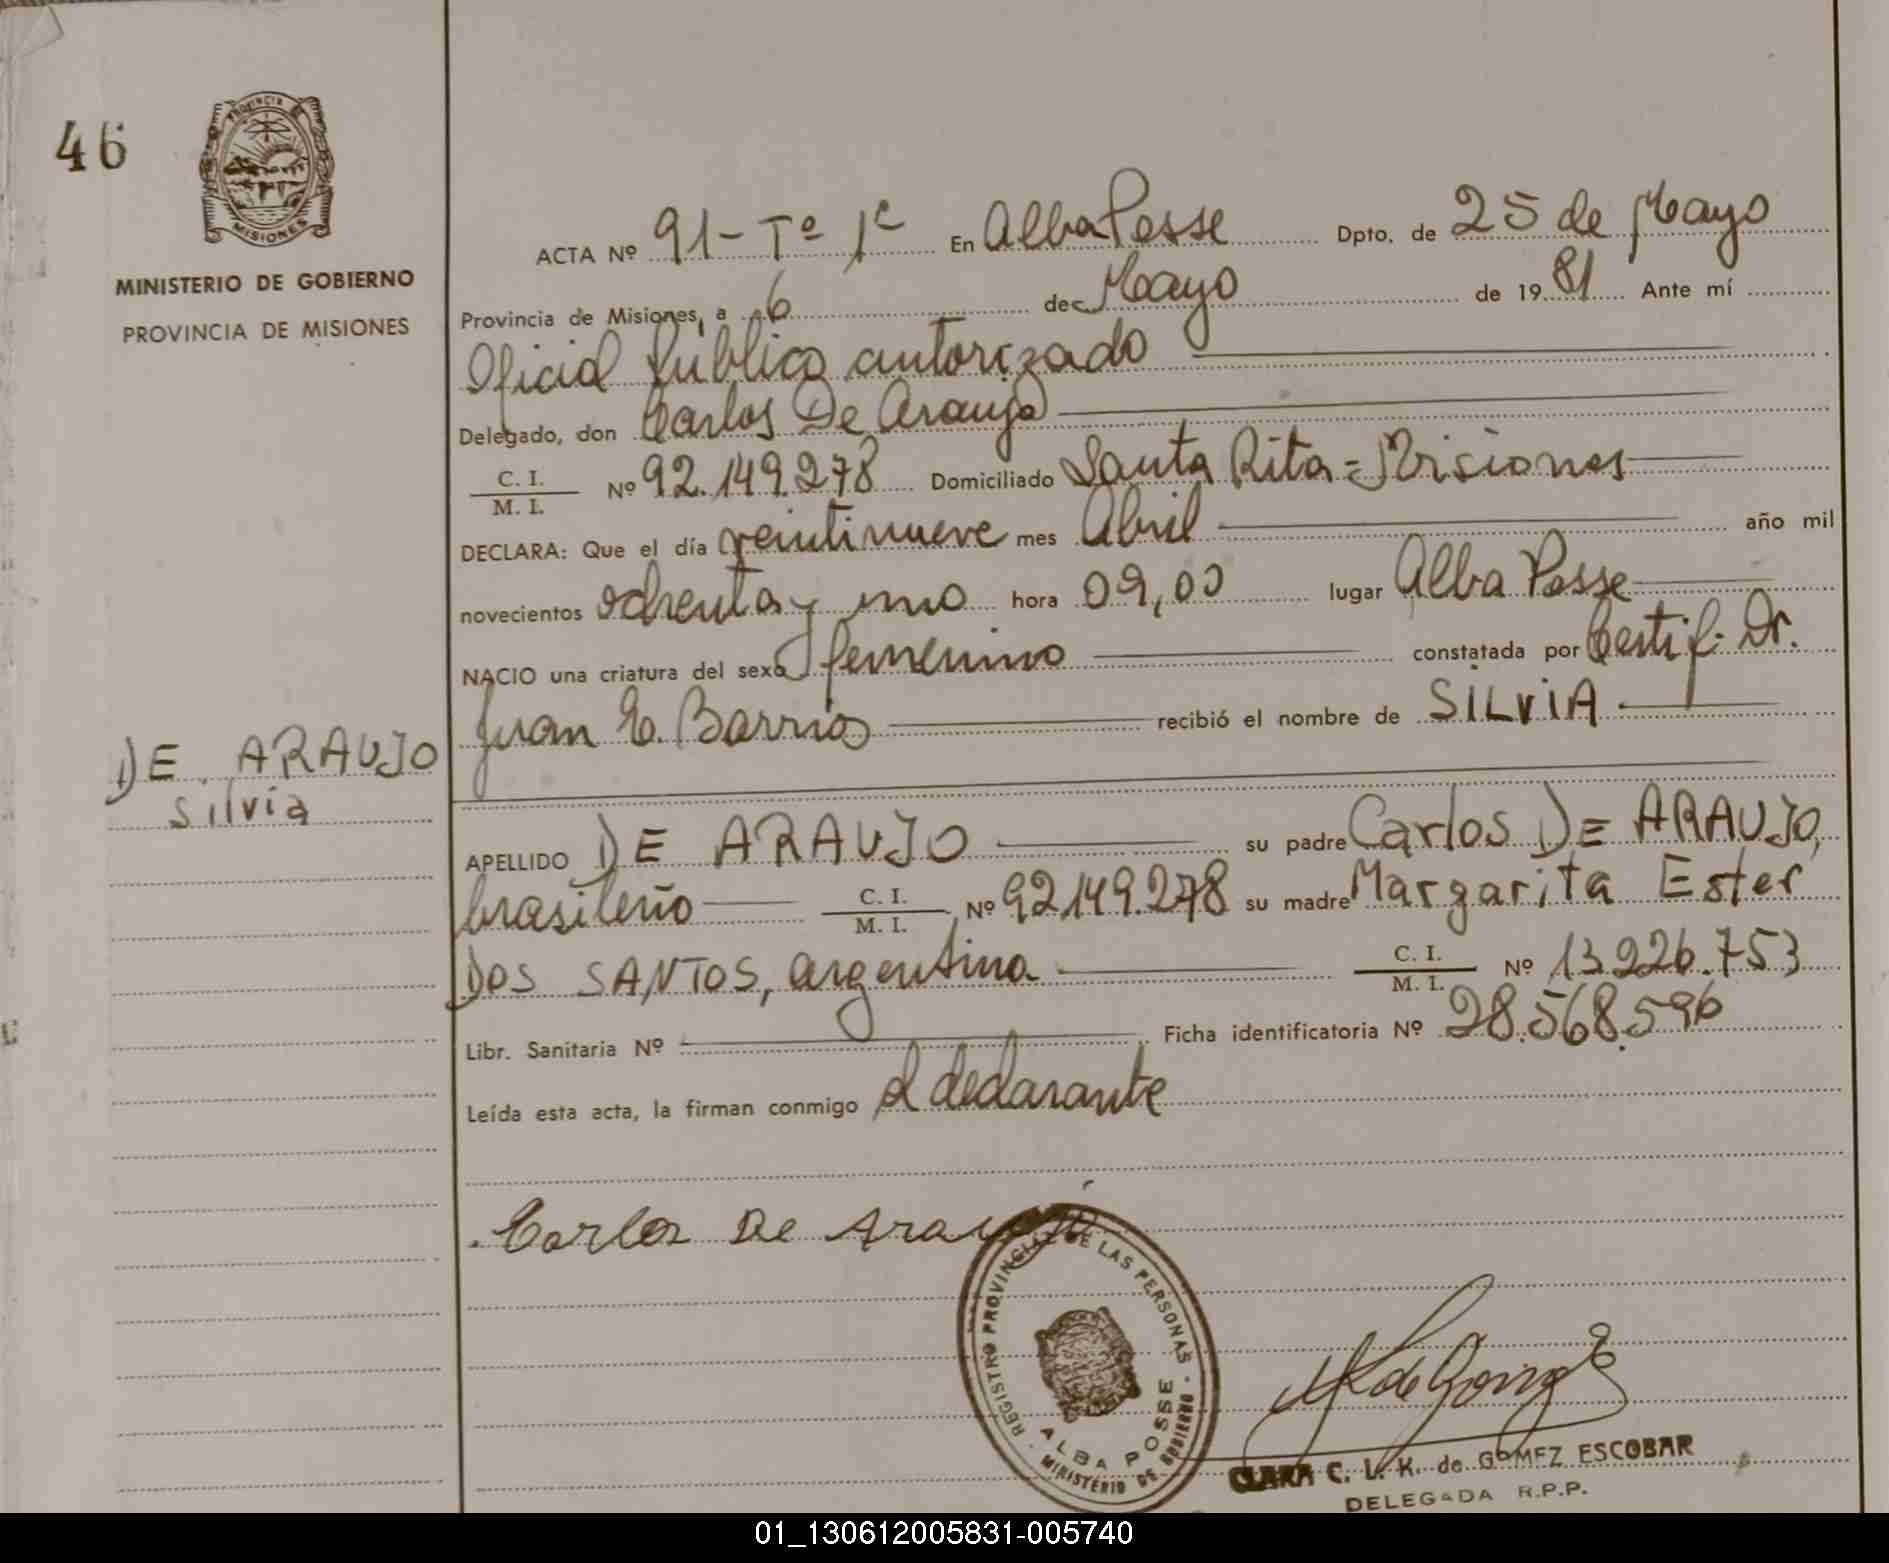 46
PROVINCIA DE
MISIONES
MINISTERIO DE GOBIERNO
PROVINCIA DE MISIONES
ACTA Nº 91- Tº 1º En Alba Posse Dpto. de 25 de Mayo
Provincia de Misiones, a 6 de Mayo de 1981 Ante mí
Oficial Público autorizado
Delegado, don Carlos De Araujo
C. I.
M. I. Nº 92.149.278 Domiciliado Santa Rita = Misiones
DECLARA: Que el día veintinueve mes Abril año mil
novecientos ochenta y uno hora 09,00 lugar Alba Posse
NACIO una criatura del sexo femenino constatada por Certif. Dr.
Juan E. Barrios recibió el nombre de SILVIA
DE ARAUJO
Silvia
APELLIDO DE ARAUJO su padre Carlos DE ARAUJO,
brasileño C. I. M. I. Nº 92.149.278 su madre Margarita Ester
DOS SANTOS, argentina C. I. M. I. Nº 13.926.753
Libr. Sanitaria Nº Ficha identificatoria Nº 28.568.596
Leída esta acta, la firman conmigo el declarante
Carlos De Araujo
REGISTRO PROVINCIAL DE LAS PERSONAS
ALBA POSSE
MINISTERIO DE GOBIERNO
CLARA C. L. K. de GOMEZ ESCOBAR
DELEGADA R.P.P.
01_130612005831-005740